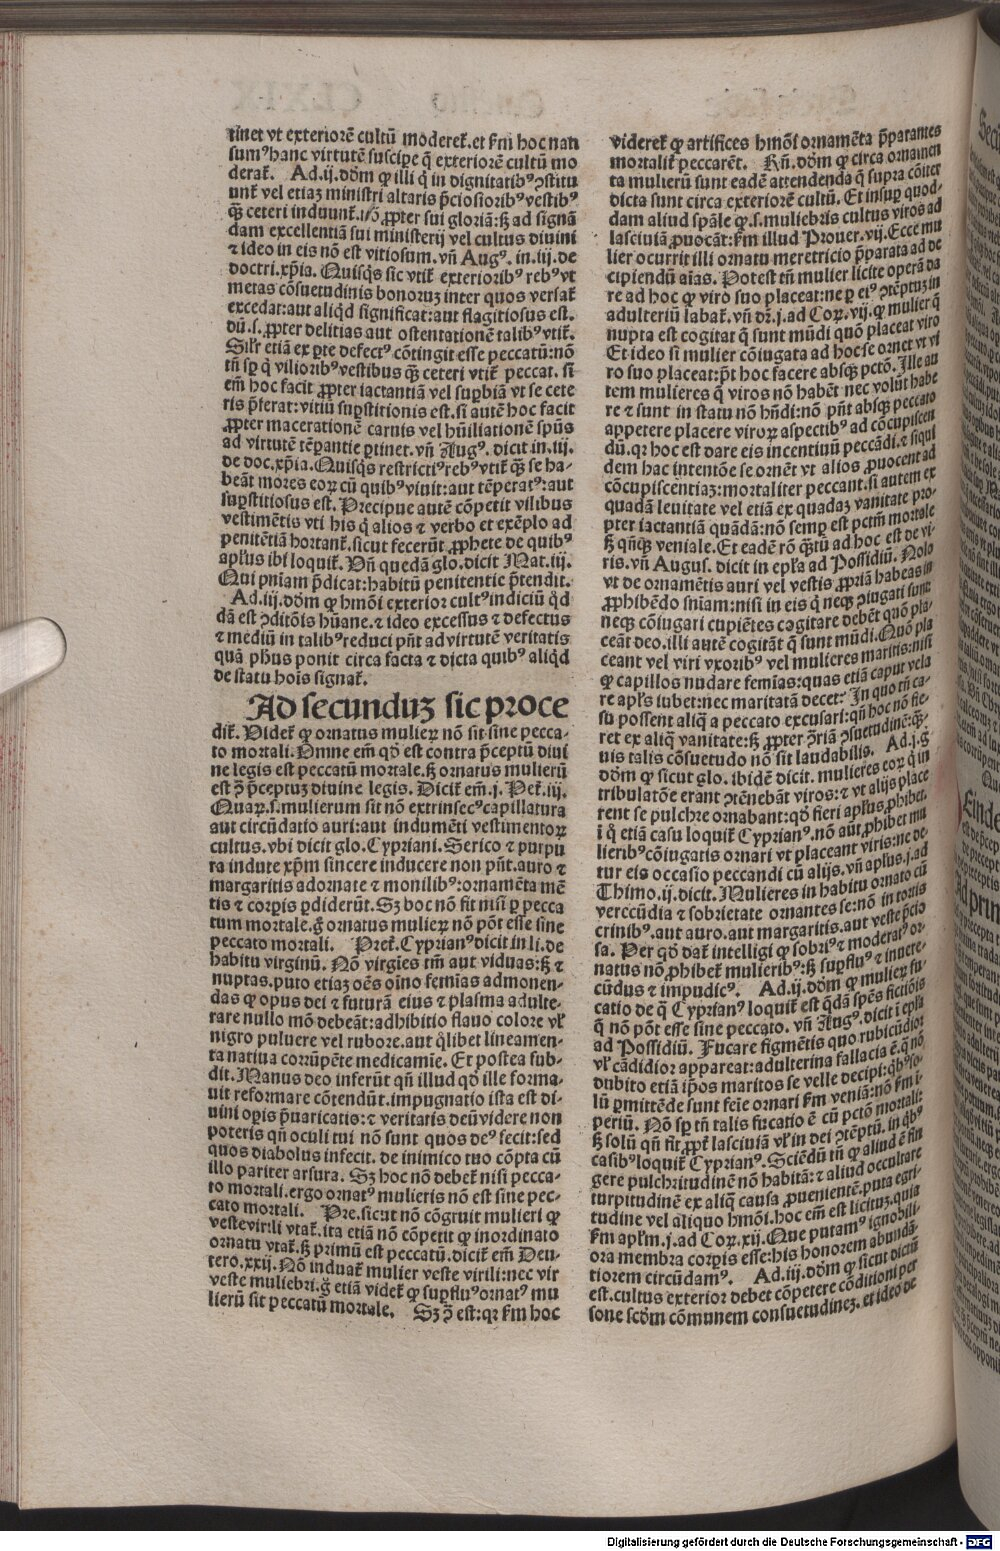 tinet vt exteriorē cultū moderet̄.et ẜm hoc natu
sumꝰ hanc virtutē suscipe q̄ exteriorē cultū mo
derat̄. Ad.ij.dōm ꝙ illi q̇ in dignitatibꝰ ꝯstitu
unt̄ vel etiaꝫ ministri altaris p̄ciosioribꝰ vestibꝰ
qƺ ceteri induunt̄.nō ꝓpter sui gloriā:sꝫ ad signā
dam excellentiā sui ministerij vel cultus diuini
⁊ ideo in eis nō est vitiosum.vn̄ Augꝰ.in.iij.de
doctri.xp̄ia. Quisqs̄ sic vtit̄ exterioribꝰ rebꝰ vt
metas cōsuetudinis bonoruꝫ inter quos versat̄
excedat:aut aliqd̄ significat:aut flagitiosus est.
dū.s.ꝓpter delitias aut ostentationē talibꝰ vtit̄.
Silr̄ etiā ex ꝑte defectꝰ cōtingit esse peccatū:nō
tn̄ sp̄ q̇ vilioribꝰ vestibus qƺ ceteri vtit̄ peccat. si
em̄ hoc facit ꝓpter iactantiā vel suꝑbiā vt se cete
ris p̄ferat:vitiū suꝑstitionis est.si autē hoc facit
ꝓpter macerationē carnis vel hūiliationē sp̄us
ad virtutē tēꝑantie ꝑtinet.vn̄ Augꝰ. dicit in.iij.
de doc.xp̄ia.Quisqs̄ restrictiꝰ rebꝰ vtit̄ qƺ se ha-
beāt mores eoꝝ cū quibꝰ viuit:aut tēperatꝰ:aut
suꝑstitiosus est. Precipue autē cōpetit vilibus
vestimētis vti his q̇ alios ⁊ verbo et exēplo ad
penitētiā hortant̄.sicut fecerūt ꝓphete de quibꝰ
apl̄us ibi loquit̄. Vn̄ quedā glo.dicit Mat.iij.
Qui pn̄iam p̄dicat:habitū penitentie p̄tendit.
Ad.iij.dōm ꝙ hmōi exterior cultꝰ indiciū q̇d
dā est ꝯditōis hūane.⁊ ideo excessus ⁊ defectus
⁊ mediū in talibꝰ reduci pn̄t ad virtutē veritatis
quā ph̄us ponit circa facta ⁊ dicta quibꝰ aliqd̄
de statu hois̄ signat̄.
Ad secunduꝫ sic proce
dit̄. Videt̄ ꝙ ornatus mulieꝝ nō sit sine pecca-
to mortali. Omne em̄ qd̄ est contra p̄ceptū diui
ne legis est peccatū mortale.sꝫ ornatus mulierū
est ꝯ̄ p̄ceptuꝫ diuine legis. Dicit̄ em̄.j. Pet̄.iij.
Quaꝝ.s.mulierum sit nō extrinsecꝰ capillatura
aut circūdatio auri:aut indumēti vestimentoꝝ
cultus.vbi dicit glo.Cypriani. Serico ⁊ purpu
ra indute xp̄m sincere inducere non pn̄t.auro ⁊
margaritis adornate ⁊ monilibꝰ:ornamēta mē
tis ⁊ corꝑis ꝑdiderūt. Sꝫ hoc nō fit nisi ꝑ pecca
tum mortale.g̊ ornatus mulieꝝ nō pōt esse sine
peccato mortali. Pret̄.Cyprianꝰ dicit in li.de
habitu virginū. Nō virgīes tm̄ aut viduas:sꝫ ⁊
nuptas.puto etiaꝫ oēs oīno femīas admonen-
das ꝙ opus dei ⁊ facturā eius ⁊ plasma adulte-
rare nullo mō debeāt:adhibitio flauo colore vl̄
nigro puluere vel rubore.aut qͥlibet lineamen-
ta natiua corrūpēte medicamie. Et postea sub-
dit. Manus deo inferūt qn̄ illud qd̄ ille forma-
uit reformare cōtendūt.impugnatio ista est di-
uini oꝑis p̄uaricatio:⁊ veritatis deū videre non
poteris qn̄ oculi tui nō sunt quos deꝰ fecit:sed
quos diabolus infecit. de inimico tuo cōpta cū
illo pariter arsura. Sꝫ hoc nō debet̄ nisi pecca-
to mortali.ergo ornatꝰ mulieris nō est sine pec-
cato mortali. Pre.sicut nō cōgruit mulieri ꝙ
veste virili vtat̄.ita etiā nō cōpetit ꝙ inordinato
ornatu vtat̄.sꝫ primū est peccatū.dicit̄ em̄ Deu-
tero.xxij. Nō induat̄ mulier veste virili:nec vir
veste muliebri.g̊ etiā videt̄ ꝙ suꝑfluꝰ ornatꝰ mu
lierū sit peccatū mortale. Sꝫ ꝯ̄ est:qꝛ ẜm hoc
videret̄ ꝙ artifices hmōi ornamēta p̄parantes
mortalit̄ peccarēt. Rn̄.dōm ꝙ circa ornamen
ta mulierū sunt eadē attendenda q̄ supra cōiter
dicta sunt circa exteriorē cultū. Et insuꝑ quod-
dam aliud spāle ꝙ.s.muliebris cultus viros ad
lasciuiā ꝓuocāt:ẜm illud Prouer.vij.Ecce mu
lier ocurrit illi ornatu meretricio p̄parata ad de
cipiendū aīas. Potest tn̄ mulier licite operā da
re ad hoc ꝙ viro suo placeat:ne ꝑ eiꝰ ꝯtēptuꝫ in
adulteriū labat̄. vn̄ dr̄.j.ad Coꝝ.vij.ꝙ mulier q̄
nupta est cogitat q̄ sunt mūdi quō placeat viro
Et ideo si mulier cōiugata ad hoc se ornet vt vi
ro suo placeat:pt̄ hoc facere absqꝫ pctō. Ille au
tem mulieres q̄ viros nō habēt nec volūt habe
re ⁊ sunt in statu nō hn̄di:nō pn̄t absqꝫ peccato
appetere placere viroꝝ aspectibꝰ ad cōcupiscen
dū.qꝛ hoc est dare eis incentiuū peccādi.⁊ siqui
dem hac intentōe se ornēt vt alios ꝓuocent ad
cōcupiscentiaꝫ:mortaliter peccant.si autem ex
quadā leuitate vel etiā ex quadaꝫ vanitate pro-
pter iactantiā quādā:nō semꝑ est pctm̄ mortale
sꝫ qn̄qꝫ veniale. Et eadē rō qͣ̄tū ad hoc est de vi-
ris.vn̄ Augus. dicit in epl̄a ad Possidiū. Nolo
vt de ornamētis auri vel vestis ꝓpriā habeas in
ꝓphibēdo sn̄iam:nisi in eis q̇ neqꝫ ꝯiugati sunt
neqꝫ cōiugari cupiētes cogitare debēt quō pla-
ceāt deo.illi autē cogitāt q̄ sunt mūdi.Quō pla
ceant vel viri vxoribꝰ vel mulieres maritis:nisi
ꝙ capillos nudare femīas:quas etiā caput vela
re apl̄s iubet:nec maritatā decet. In quo tn̄ ca-
su possent aliq̄ a peccato excusari:qn̄ hoc nō fie-
ret ex aliq̄ vanitate:sꝫ ꝓpter ꝯ̄riā ꝯsuetudinē:qƺ-
uis talis cōsuetudo nō sit laudabilis. Ad.j.g̊
dōm ꝙ sicut glo. ibidē dicit. mulieres eoꝝ q̇ in
tribulatōe erant ꝯtēnebāt viros:⁊ vt alijs place
rent se pulchre ornabant:qd̄ fieri apl̄us ꝓhibet.
ī q̇ etiā casu loquit̄ Cyprianꝰ.nō aūt ꝓhibet mu
lieribꝰ cōiugatis ornari vt placeant viris:ne de-
tur eis occasio peccandi cū alijs.vn̄ apl̄us.j.ad
Thimo.ij.dicit. Mulieres in habitu ornato cū
vereccūdia ⁊ sobrietate ornantes se:nō in tortis
crinibꝰ.aut auro.aut margaritis.aut veste p̄cio
sa. Per qd̄ dat̄ intelligi ꝙ sobriꝰ ⁊ moderatꝰ or-
natus nō ꝓhibet̄ mulieribꝰ:sꝫ suꝑfluꝰ ⁊ inuere-
cūdus ⁊ impudicꝰ. Ad.ij.dōm ꝙ mulieꝝ fu-
catio de q̄ Cyprianꝰ loquit̄ est qd̄ā spēs fictiōis
q̄ nō pōt esse sine peccato. vn̄ Augꝰ.dicit ī epl̄a
ad Possidiū. Fucare figmētis quo rubicūdior
vl̄ cādidior appareat:adulterina fallacia ē.q̄ nō
dubito etiā ip̄os maritos se velle decipi:qbꝰ so-
lū ꝑmittēde sunt feīe ornari ẜm veniā:nō ẜm i-
periū. Nō sp̄ tn̄ talis fucatio ē cū pctō mortali:
sꝫ solū qn̄ fit ꝓpt̄ lasciuiā vl̄ in dei ꝯtēptū. in qbꝰ
casibꝰ loquit̄ Cyprianꝰ. Sciēdū tn̄ ꝙ aliud ē fin
gere pulchritudinē nō habitā:⁊ aliud occultare
turpitudinē ex aliq̄ causa ꝓuenientē.puta egri-
tudine vel aliquo hmōi.hoc em̄ est licituꝫ.quia
ẜm apl̄m.j.ad Coꝝ.xij.Que putamꝰ ignobili-
ora membra corꝑis esse:his honorem abundā-
tiorem circūdamꝰ. Ad.iij.dōm ꝙ sicut dictū
est.cultus exterior debet cōpetere cōditioni per
sone scd̄m cōmunem consuetudineꝫ. et ideo de
Digitalisierung gefördert durch die Deutsche Forschungsgemeinschaft - DFG